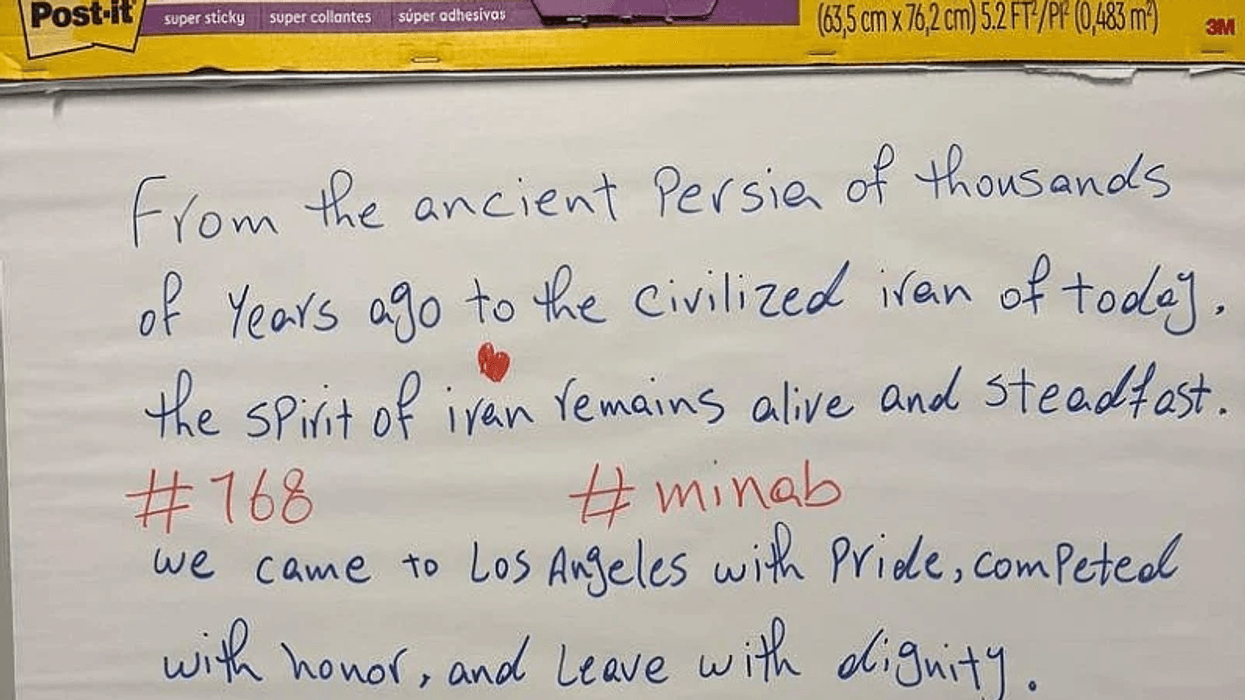 Post-it super sticky super collantes súper adhesivas (63,5 cm x 76,2 cm) 5.2 FT²/PI² (0,483 m²) 3M
From the ancient Persia of thousands
of Years ago to the civilized iran of today.
the spirit of iran remains alive and steadfast.
#168 #minab
we came to Los Angeles with Pride, competed
with honor, and Leave with dignity.